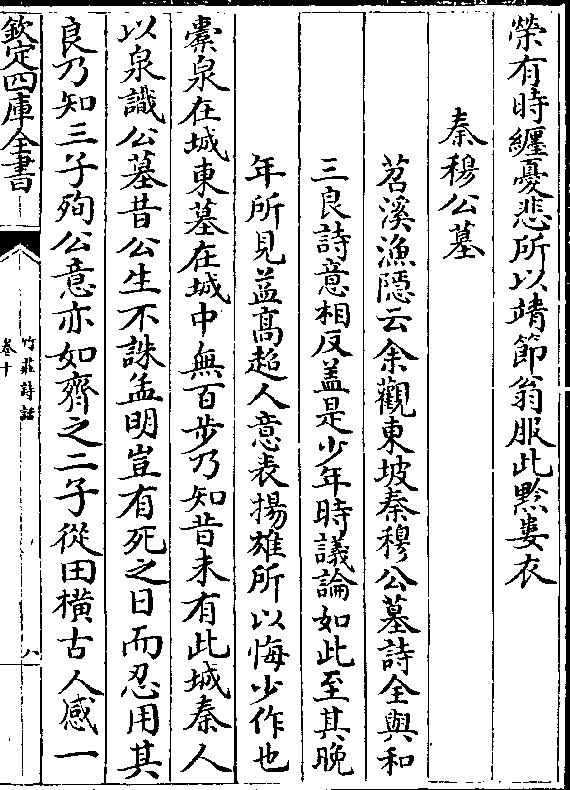 榮有時纏憂悲所以靖節翁服此黔婁衣
秦穆公墓
苕溪漁隱云余觀東坡秦穆公墓詩全與和
三良詩意相反蓋是少年時議論如此至其晚
年所見益高超人意表揚雄所以悔少作也
橐泉在城東墓在城中無百步乃知昔未有此城秦人
以泉識公墓昔公生不誅孟明豈有死之日而忍用其
良乃知三子殉公意亦如齊之二子從田橫古人感一
欽定四庫全書
竹莊詩話
卷十
八